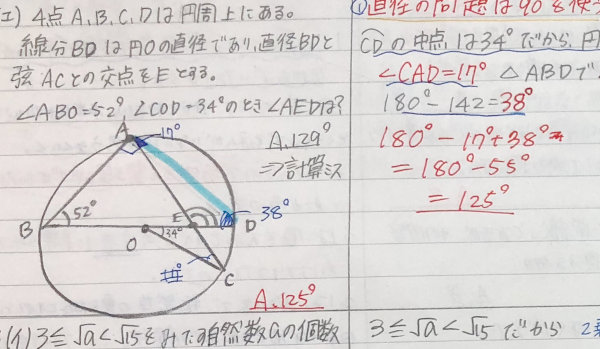 (エ) 4点A,B,C,Dは円周上にある。
線分BDは円Oの直径であり,直径BDと
弦ACとの交点をEとする。
∠ABO=52° ∠COD=34°のとき∠AEDは?
A.129°
⇒計算ミス
A
17°
B
52°
O
34°
E
D
38°
C
A.125°
①直径の円周は90°を使
CDの中点は34°だから,円
∠CAD=17° △ABDで
180°-142=38°
180°-17°+38°
=180°-55°
=125°
(イ) 3≦√a<√15をみたす自然数aの個数
3≦√a<√15 だから 2乗